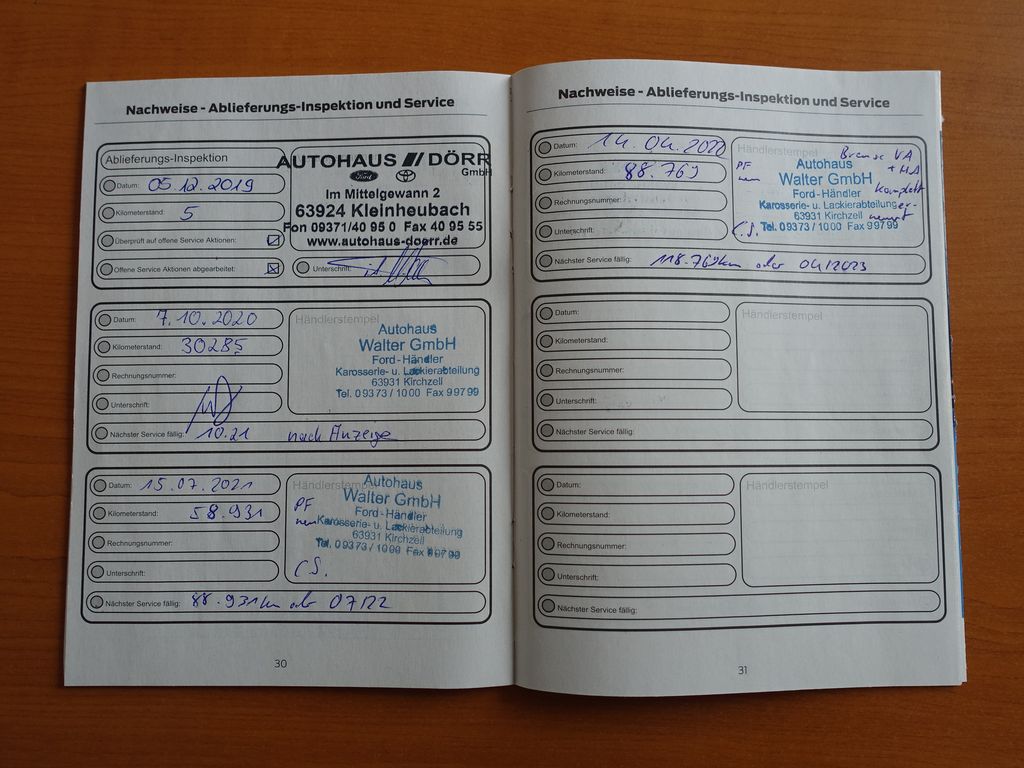 Nachweise - Ablieferungs-Inspektion und Service
Ablieferungs-Inspektion
Datum: 05.12.2019
Kilometerstand: 5
Überprüft auf offene Service Aktionen:
Offene Service Aktionen abgearbeitet:
AUTOHAUS DÖRR
GmbH
Ford
Im Mittelgewann 2
63924 Kleinheubach
Fon 09371/40 95 0 Fax 40 95 55
www.autohaus-doerr.de
Unterschrift:
Datum: 7.10.2020
Kilometerstand: 30285
Rechnungsnummer:
Unterschrift:
Nächster Service fällig: 10.21 nach Anzeige
Händlerstempel
Autohaus
Walter GmbH
Ford-Händler
Karosserie- u. Lackierabteilung
63931 Kirchzell
Tel. 09373/1000 Fax 99799
Datum: 15.07.2021
Kilometerstand: 58.931
Rechnungsnummer:
Unterschrift:
Nächster Service fällig: 88.931km oder 07/22
Händlerstempel
PF
neu
Autohaus
Walter GmbH
Ford-Händler
Karosserie- u. Lackierabteilung
63931 Kirchzell
Tel. 09373/1000 Fax 99799
C.S.
30
Nachweise - Ablieferungs-Inspektion und Service
Datum: 14.04.2022
Kilometerstand: 88.769
Rechnungsnummer:
Unterschrift:
Nächster Service fällig: 118.769km oder 04/2023
Händlerstempel
PF
neu
Bremse VA
+ HA
komplett
erneuert
Autohaus
Walter GmbH
Ford-Händler
Karosserie- u. Lackierabteilung
63931 Kirchzell
Tel. 09373/1000 Fax 99799
C.S.
Datum:
Kilometerstand:
Rechnungsnummer:
Unterschrift:
Nächster Service fällig:
Händlerstempel
Datum:
Kilometerstand:
Rechnungsnummer:
Unterschrift:
Nächster Service fällig:
Händlerstempel
31